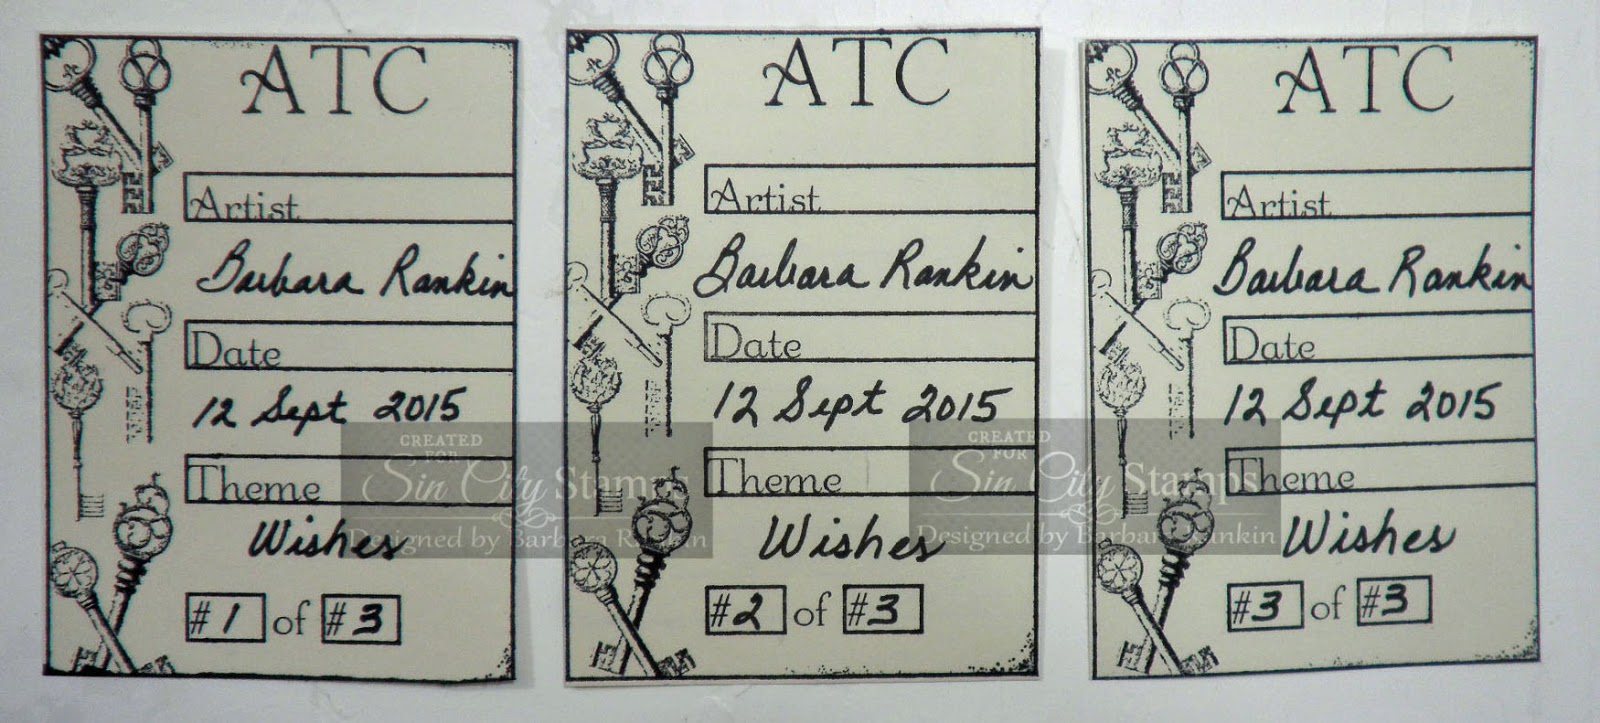 ATC
Artist
Barbara Rankin
Date
12 Sept 2015
Theme
Wishes
#1 of #3
ATC
Artist
Barbara Rankin
Date
12 Sept 2015
Theme
Wishes
#2 of #3
ATC
Artist
Barbara Rankin
Date
12 Sept 2015
Theme
Wishes
#3 of #3
CREATED
FOR
Sin City Stamps
Designed by Barbara Rankin
CREATED
FOR
Sin City Stamps
Designed by Barbara Rankin